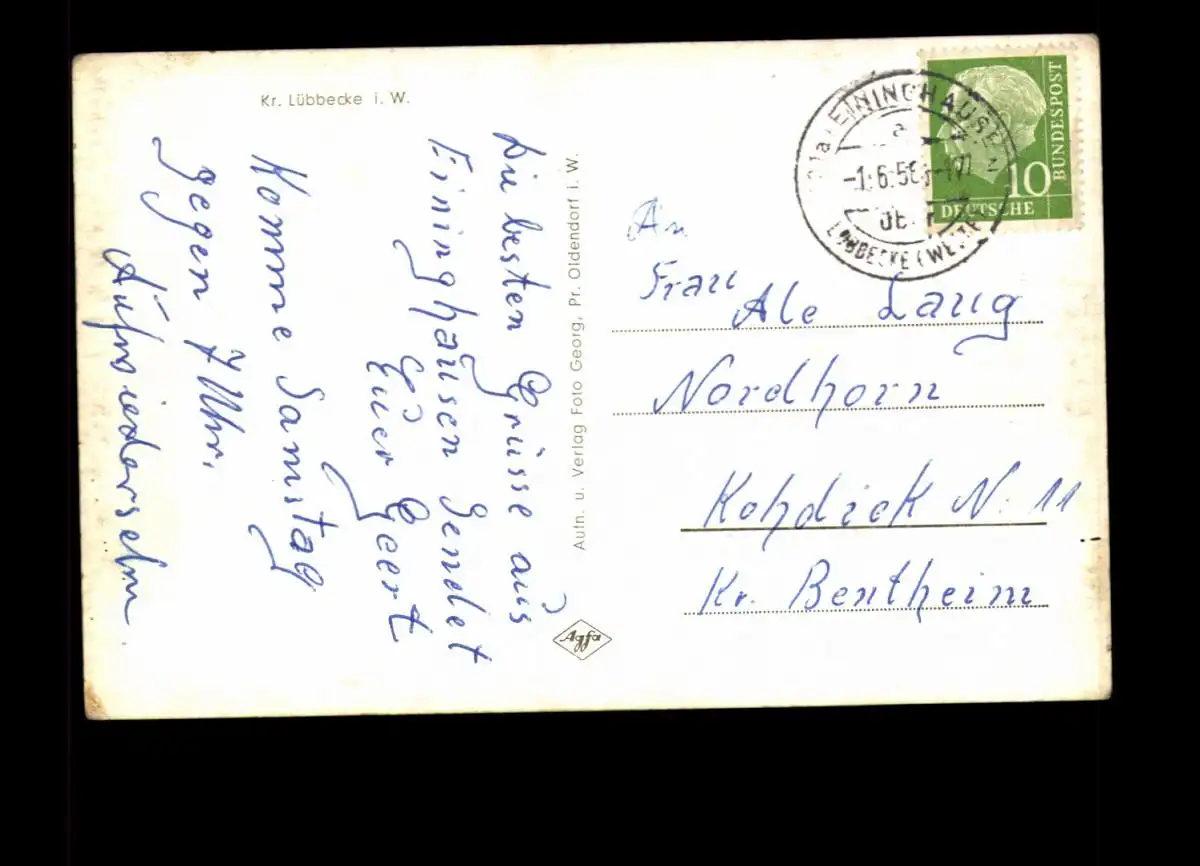 Kr. Lübbecke i. W.
Die besten Grüsse aus
Eininghausen sendet
Euer Geert
Komme Samstag
gegen 7 Uhr.
Aufwiedersehn
Autn. u. Verlag Foto Georg, Pr. Oldendorf i. W.
Agfa
EININGHAUSEN
a
-1.6.56
LÜBBECKE (WESTF
10
DEUTSCHE
BUNDESPOST
An
Frau Ale Laug
Nordhorn
Kohdiek N: 11
Kr. Bentheim